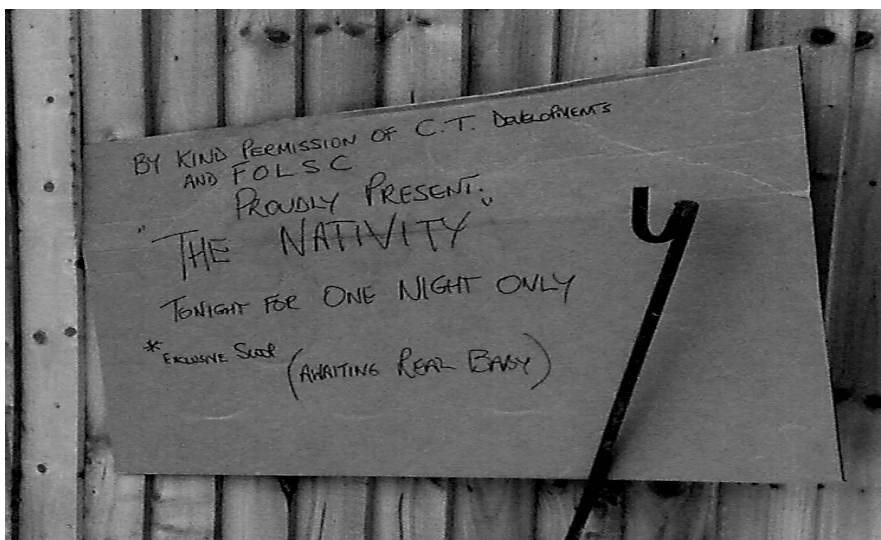 BY KIND PERMISSION OF C.T. DEVELOPMENTS
AND FOLSC
PROUDLY PRESENT.
"THE NATIVITY"
TONIGHT FOR ONE NIGHT ONLY
* EXCLUSIVE SCOOP (AWAITING REAL BABY)